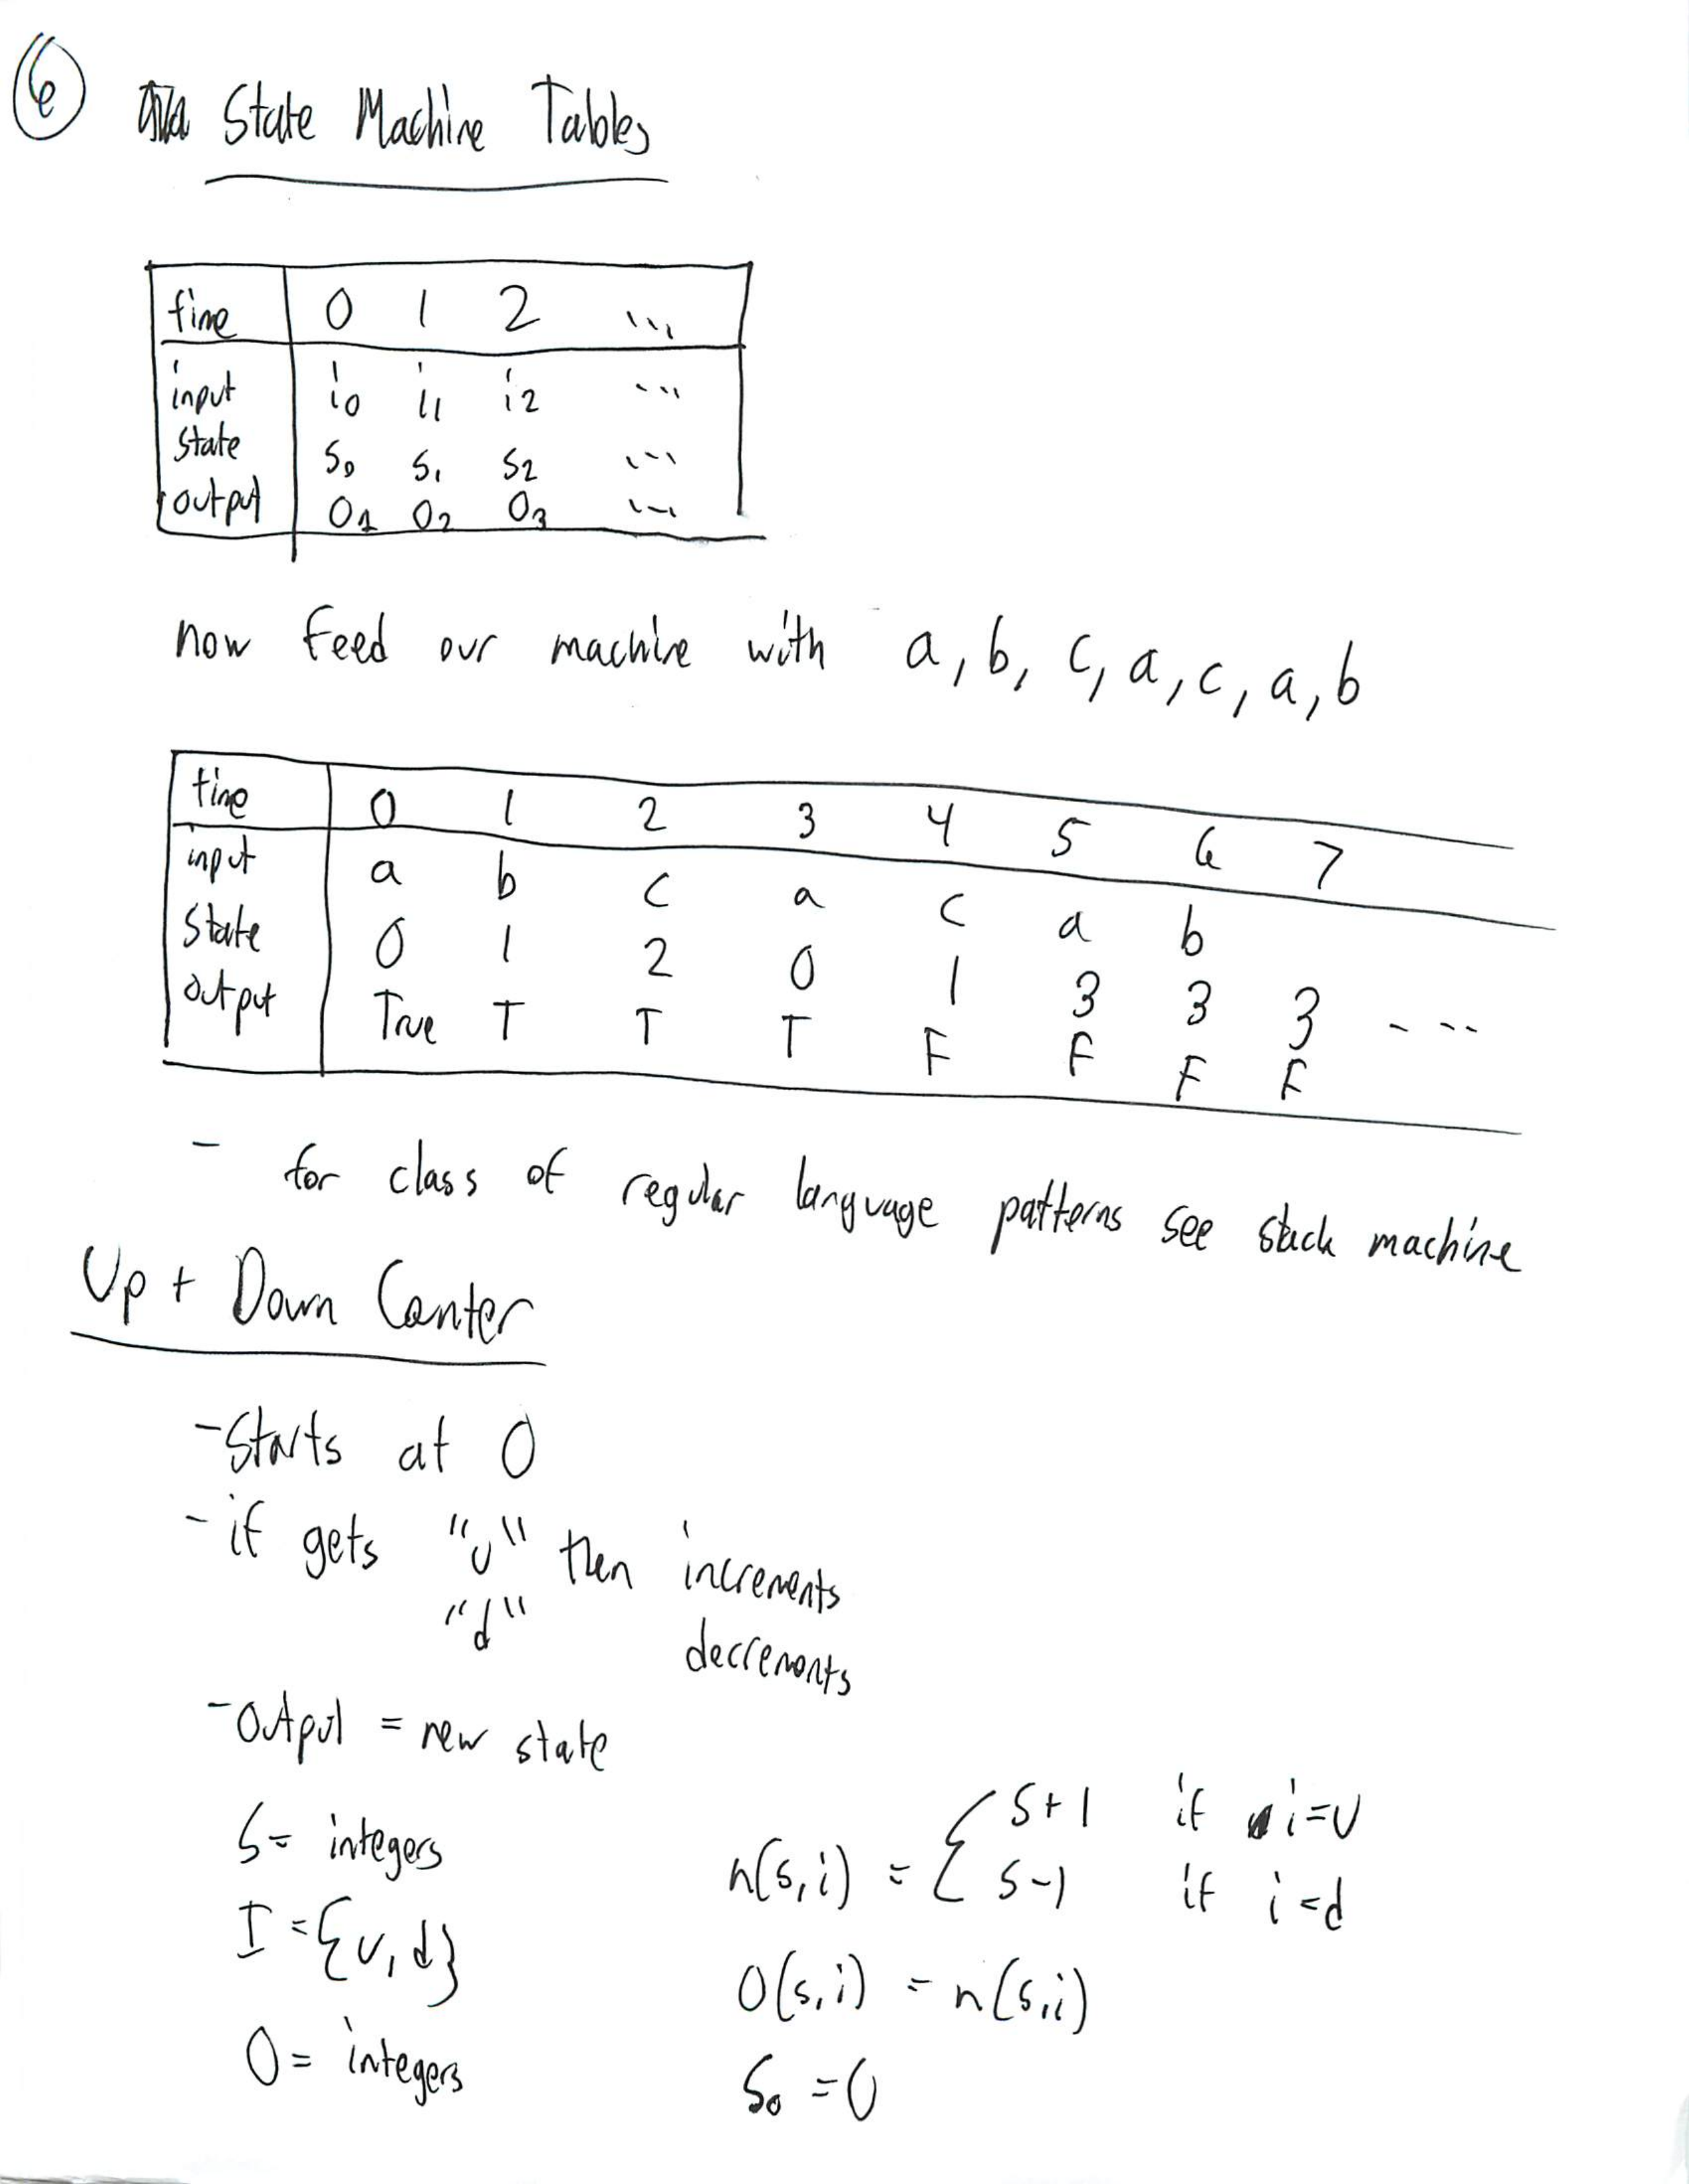 6 State Machine Tables
time 0 1 2 ...
input i0 i1 i2 ...
state s0 s1 s2 ...
output O1 O2 O3 ...
now feed our machine with a, b, c, a, c, a, b
time 0 1 2 3 4 5 6 7
input a b c a c a b
state 0 1 2 0 1 3 3 3 ...
output True T T T F F F F
- for class of regular language patterns see stack machine
Up + Down Counter
- Starts at 0
- if gets "u" then increments
"d" decrements
- output = new state
S = integers
I = {u, d}
O = integers
n(s, i) = { s+1 if i=u
s-1 if i=d
O(s, i) = n(s, i)
S0 = 0